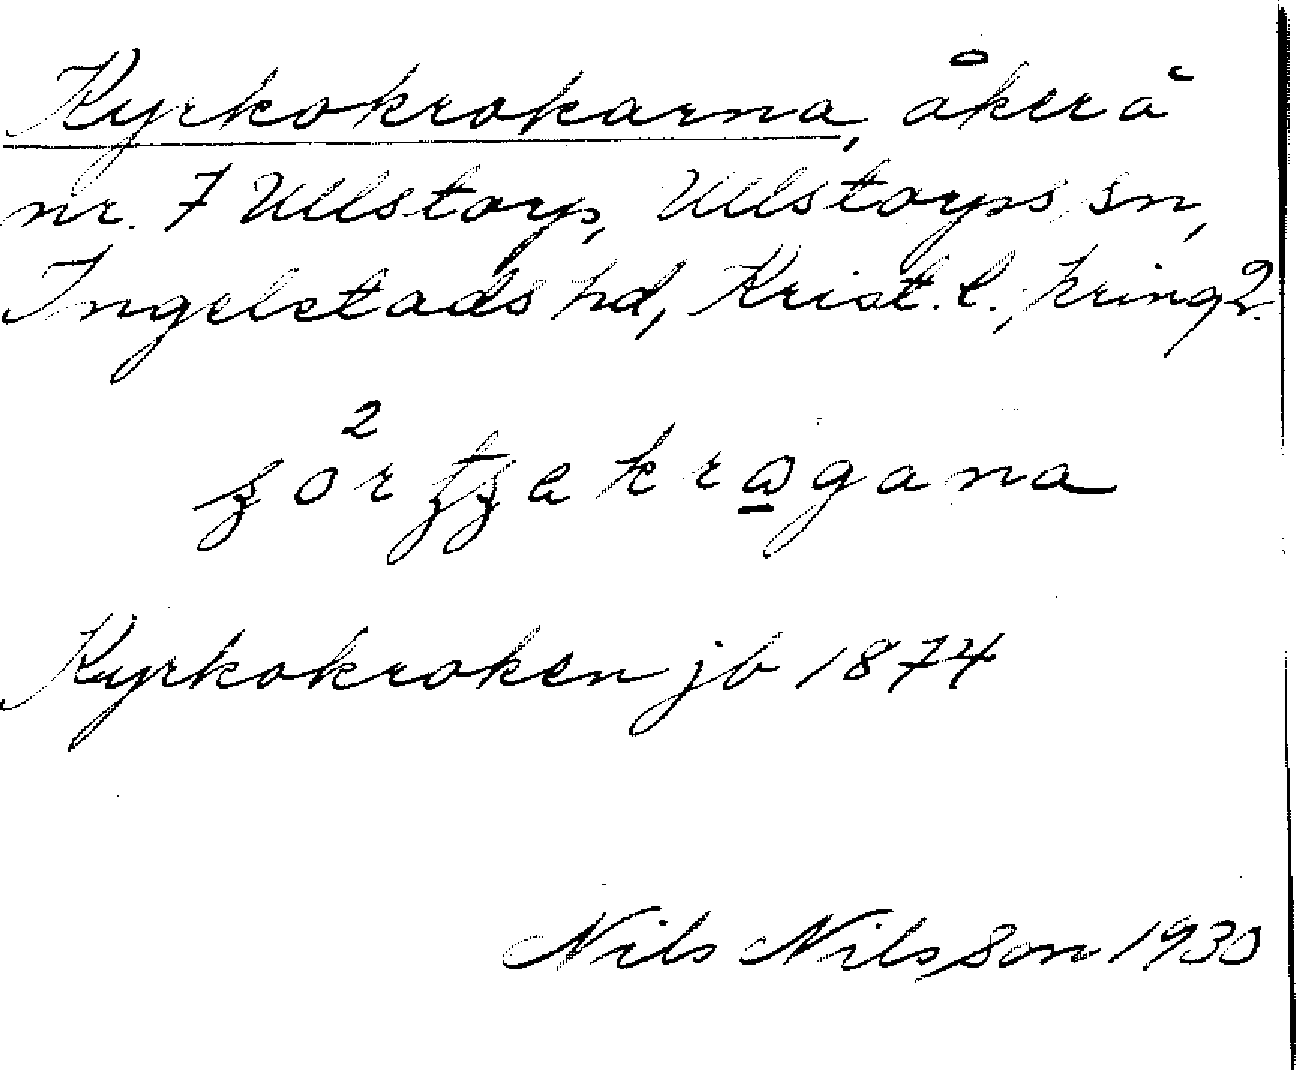 Kyrkokrokarna, åker å
nr. 7 Ullstorp, Ullstorps sn,
Ingelstads hd, Krist. l., kring 2.
Kyrkokroken jb 1874
Nils Nilsson 1930